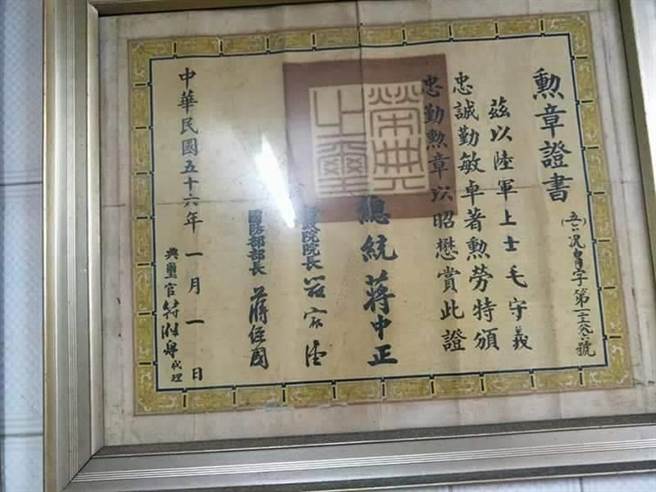 勲章證書
字第 號
茲以陸軍上士毛守義
忠誠勤敏卓著勲勞特頒
忠勤勲章以昭懋賞此證
榮典之璽
總統 蔣中正
行政院院長
國防部部長 蔣經國
中華民國五十六年一月一日
典璽官 代理